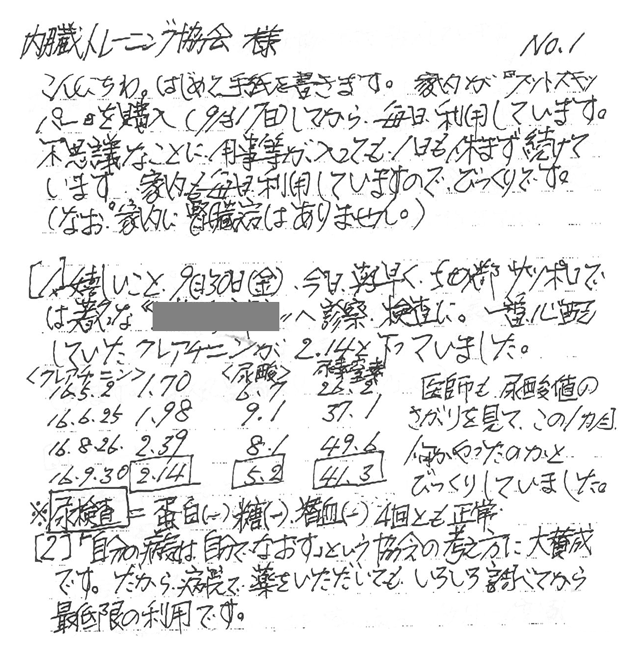 内臓トレーニング協会 様 No.1
こんにちわ。はじめて手紙を書きます。家内が『フットスキッ
パー』を購入(9月17日)してから、毎日利用しています。
不思議なことに、用事等が入っても、1日も休まず続けて
います。家内も毎日利用していますので、びっくりです。
(なお、家内に腎臓病はありません。)
[1]嬉しいこと、9月30日(金)、今日、朝早く、 サッポロで
は著名な《 》へ診察、検査に。一番心配
していたクレアチニンが、2.14と下っていました。
<クレアチニン> <尿酸> 尿素窒素
16.5.2 1.70 6.7 26.2
16.6.25 1.98 9.1 37.1
16.8.26. 2.39 8.1 49.6
16.9.30 2.14 5.2 41.3
医師も、尿酸値の
さがりを見て、この1カ月
何かやったのかと
びっくりしていました。
※尿検査=蛋白(-)、糖(-)、潜血(-)4回とも正常
[2]「自分の病気は自分でなおす」という協会の考え方に大賛成
です。だから、病院で薬をいただいても、いろいろ調べてから
最低限の利用です。